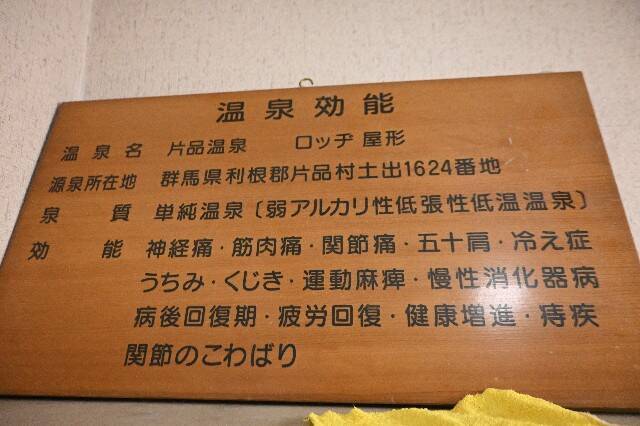 温泉効能
温泉名 片品温泉 ロッヂ屋形
源泉所在地 群馬県利根郡片品村土出1624番地
泉質 単純温泉〔弱アルカリ性低張性低温温泉〕
効能 神経痛・筋肉痛・関節痛・五十肩・冷え症
うちみ・くじき・運動麻痺・慢性消化器病
病後回復期・疲労回復・健康増進・痔疾
関節のこわばり